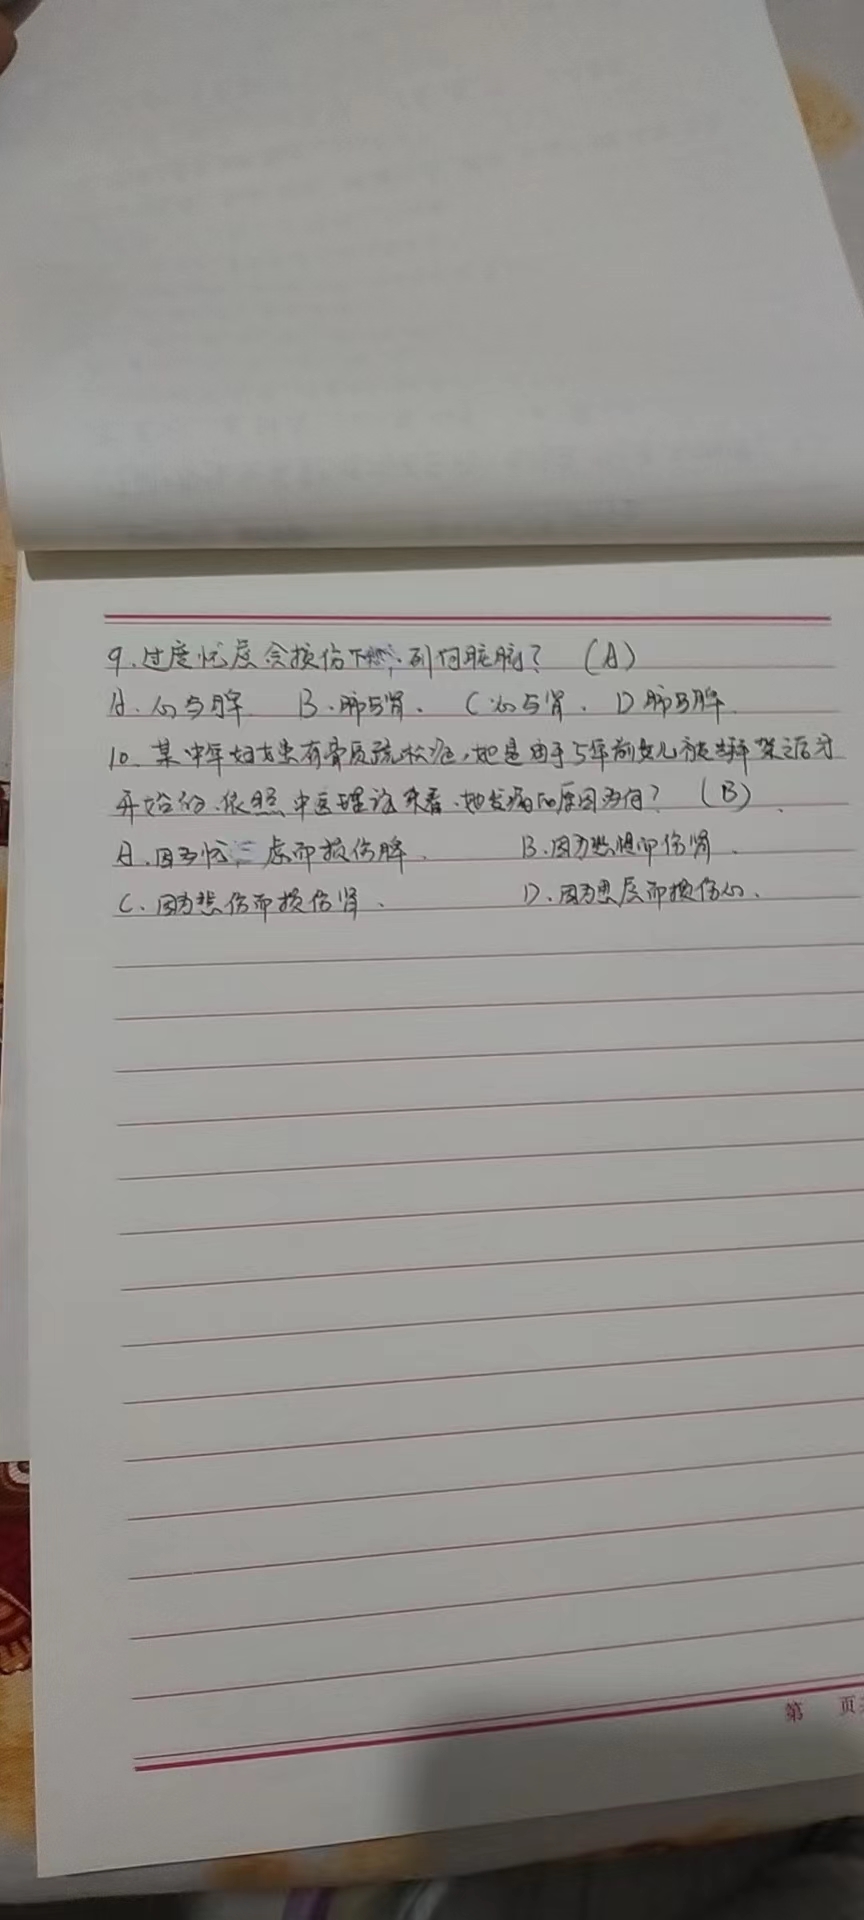 9.过度忧虑会损伤下列何脏腑？（A）
A.心与脾 B.肺与肾. C心与肾. D肺与脾.
10.某中年妇女患有骨质疏松症,她是由于5年前女儿被绑架之后才
开始的.依照中医理论来看.她发病的原因为何？（B）
A.因为忧虑而损伤脾. B.因为恐惧而伤肾.
C.因为悲伤而损伤肾. D.因为思虑而损伤心.
第 页